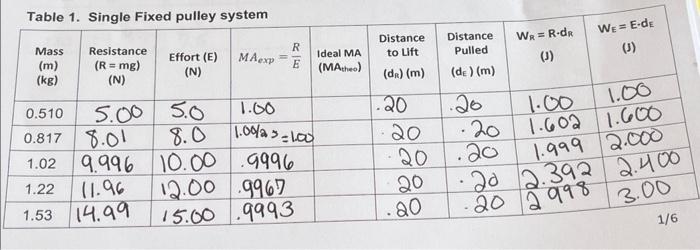 Table 1. Single Fixed pulley system
Mass (m) (kg) Resistance (R = mg) (N) Effort (E) (N) MAexp = R/E Ideal MA (MAtheo) Distance to Lift (dR) (m) Distance Pulled (dE) (m) WR = R·dR (J) WE = E·dE (J)
0.510 5.00 5.0 1.00 .20 .20 1.00 1.00
0.817 8.01 8.0 1.00125=1.00 .20 .20 1.602 1.600
1.02 9.996 10.00 .9996 .20 .20 1.999 2.000
1.22 11.96 12.00 .9967 .20 .20 2.392 2.400
1.53 14.99 15.00 .9993 .20 .20 2.998 3.00
1/6